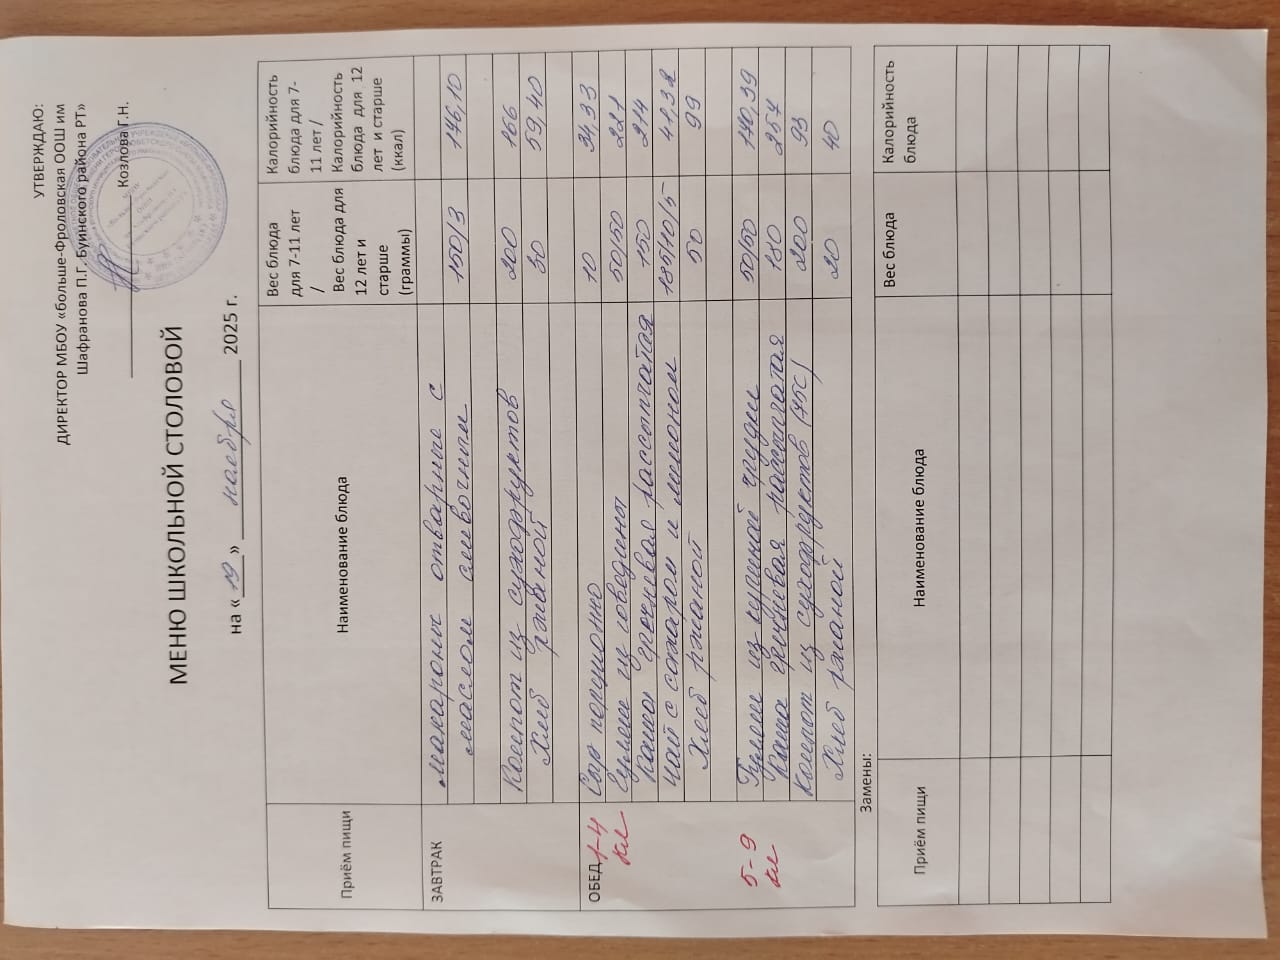 УТВЕРЖДАЮ:
ДИРЕКТОР МБОУ «больше-Фроловская ООШ им
Шафранова П.Г. Буинского района РТ»
Козлова Г.Н.
МЕНЮ ШКОЛЬНОЙ СТОЛОВОЙ
на « 19 » ноября 2025 г.
Приём пищи Наименование блюда Вес блюда для 7-11 лет / Вес блюда для 12 лет и старше (граммы) Калорийность блюда для 7-11 лет / Калорийность блюда для 12 лет и старше (ккал)
ЗАВТРАК
макароны отварные с
маслом сливочным 150/3 146,10
Компот из сухофруктов 200 166
Хлеб ржаной 30 59,40
ОБЕД 1-4 кл
Сыр порционно 10 34,33
Гуляш из говядины 50/50 221
Каша гречневая рассыпчатая 150 214
Чай с сахаром и лимоном 185/10/5 41,32
Хлеб ржаной 50 99
5-9 кл
Гуляш из куриной грудки 50/50 140,39
Каша гречневая рассыпчатая 180 257
Компот из сухофруктов (75С) 200 93
Хлеб ржаной 20 40
Замены:
Приём пищи Наименование блюда Вес блюда Калорийность блюда